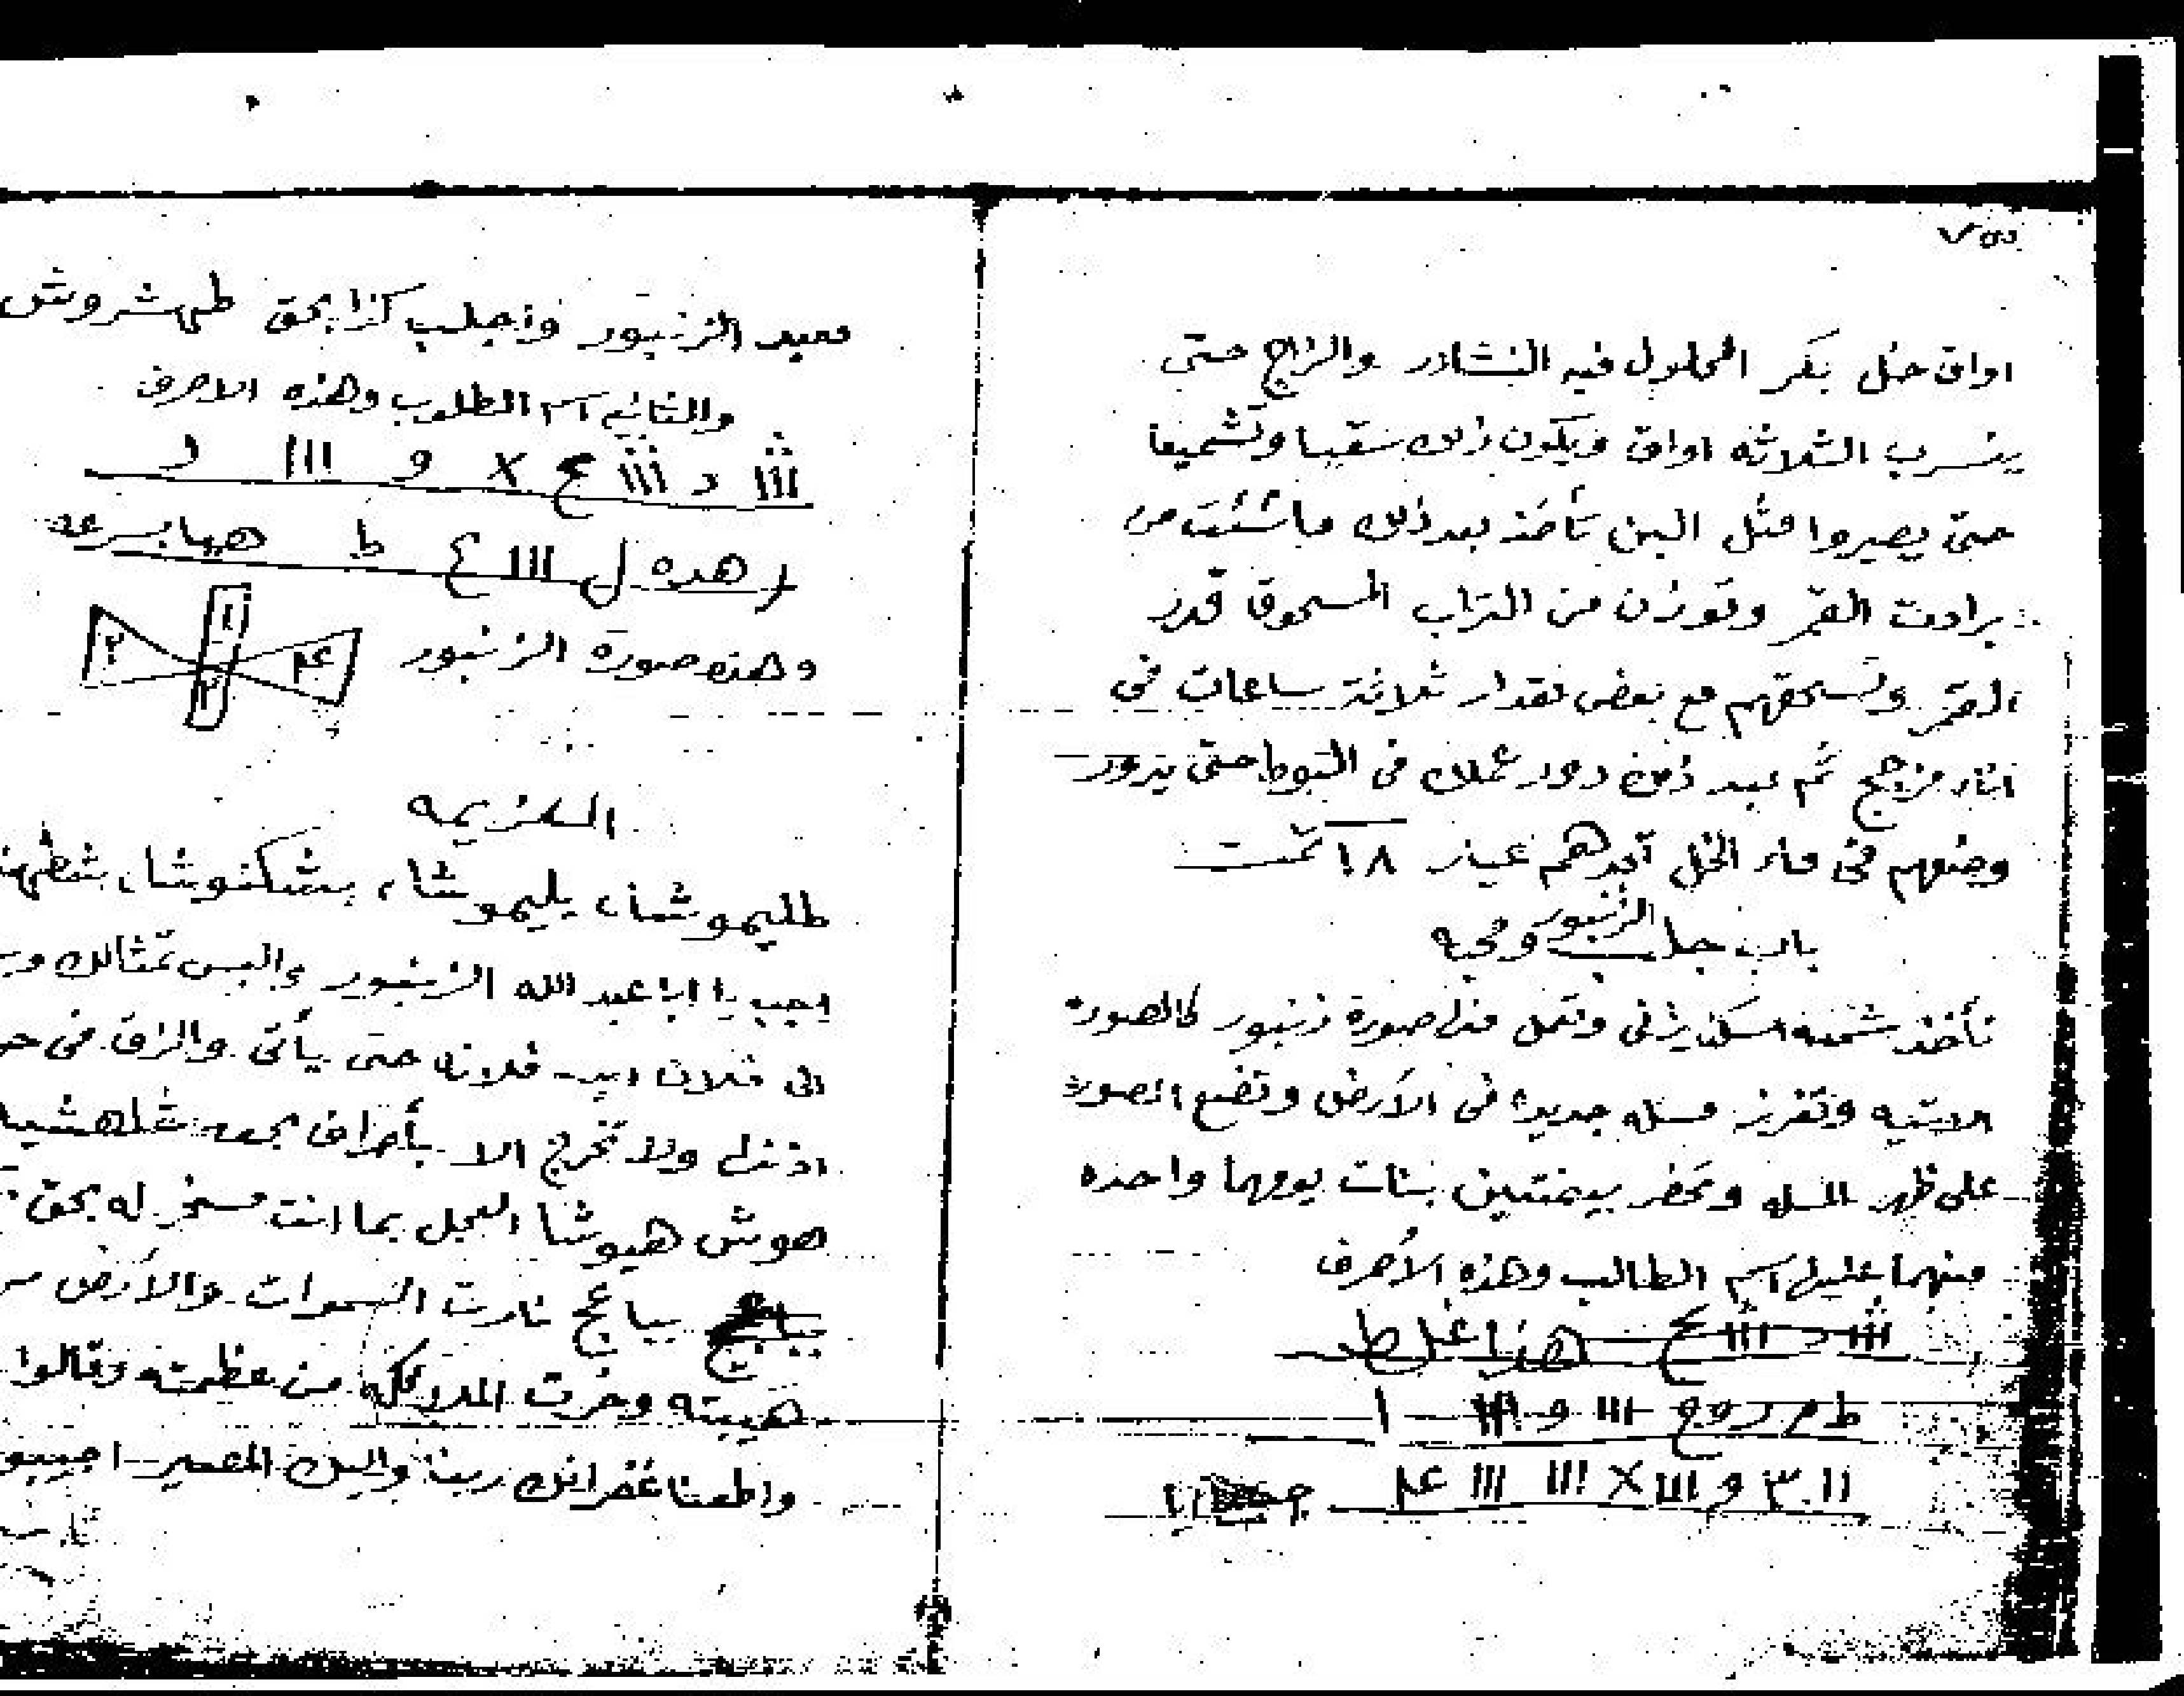 اواق خل بكر المحلول فيه النشادر والزاج حتى
يشرب الثلاثه اواق ويكون ذلك سقيا وتشميعا
حتى يصيروا مثل البن تأخذ بعد ذلك ما شئت من
برادت القمر وتوزن من التراب المسحوق قدر
القمر وتسحقهم مع بعض مقدار ثلاثة ساعات في
ثم بعد ذلك في البوط حتى يدور
وضعهم في ماء الخل تجدهم عيار ١٨ تمت
باب جلب الزنبور ومحبه
تأخذ شمعه وتعمل منها صورة زنبور كالصورة
الاتيه وتغرز مسله جديدة في الأرض وتضع الصورة
على ظهر المسله وتحضر بيضتين بنات يومهما واحده
منهما عليها اسم الطالب وهذه الأحرف
هذا غلط
ااا و ااا ا
اا ٣ و ااا X ااا ااا عم
الزنبور واجلب كذا بحق طهشروش
والثاني اسم المطلوب وهذه الاحرف
د X و ااا د
هده ل ااا ع ط ههيا بسرعه
وهذه صورة الزنبور
١ ٢ ٣ عم
العزيمه
طليموشا، يليموشا، بشكنوشا،
اجب يا ابا عبد الله الزنبور والبس تمثالك
الى فلان ابن فلانه حتى يأتى والزق فى
اذنها ولا تخرج الا
هوش هيوشا العجل بما انت مسخر له بحق
بياعج السموات والأرض
هيبته وخرت الملائكه من عظمته وقالوا
واطعنا غفرانك ربنا واليك المصير اجيبو